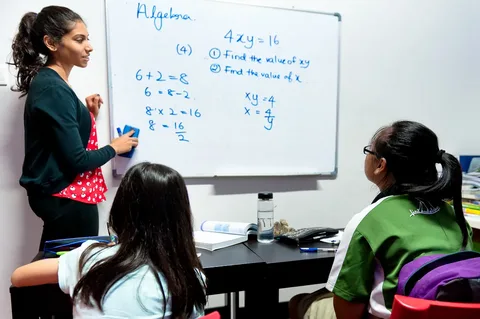 Algebra
(4)
4xy = 16
① Find the value of xy
② Find the value of x
6 + 2 = 8
6 = 8 - 2
8 x 2 = 16
8 = 16
2
xy = 4
x = 4
y